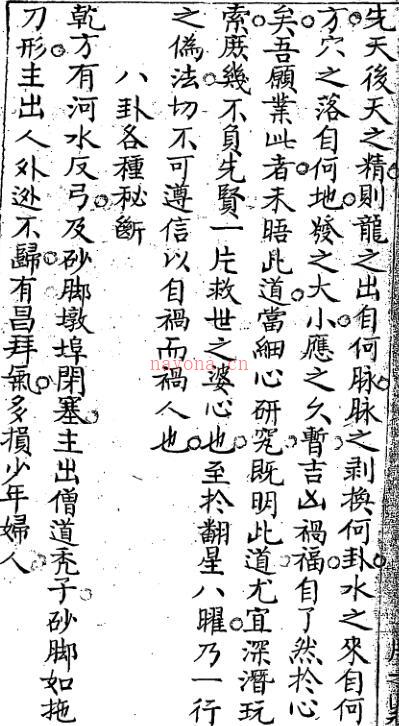 先天後天之精則龍之出自何脉脉之剥換何卦水之來自何
方穴之落自何地發之大小應之久暫吉凶禍福自了然於心
矣吾願業此者未晤此道當細心研究既明此道尤宜深潛玩
索庶幾不負先賢一片救世之婆心也至於翻星八曜乃一行
之僞法切不可遵信以自禍而禍人也
八卦各種秘斷
乾方有河水反弓及砂脚墩埠閉塞主出僧道禿子砂脚如拖
刀形主出人外迯不歸有昌拜氣多損少年婦人
nayona.cn